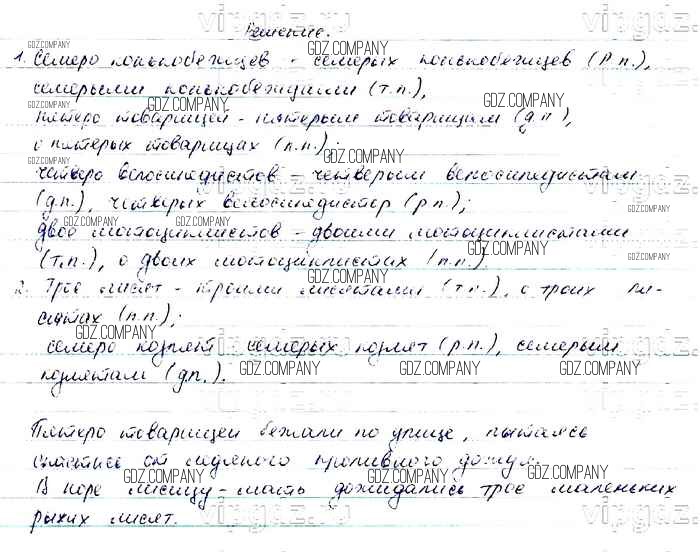 Решение.
1. Семеро конькобежцев - семерых конькобежцев (Р.п.),
семерыми конькобежцами (т.п.),
пятеро товарищей - пятерым товарищам (д.п.),
о пятерых товарищах (п.п.);
четверо велосипедистов - четверым велосипедистам
(д.п.), четверых велосипедистов (р.п.);
двое мотоциклистов - двоими мотоциклистами
(т.п.), о двоих мотоциклистах (п.п.)
2. Трое лисят - троими лисятами (т.п.), о троих ли-
сятах (п.п.);
семеро козлят семерых козлят (р.п.), семерым
козлятам (д.п.).
Пятеро товарищей бежали по улице, пытаясь
спастись от ледяного проливного дождя.
В норе лисицу-мать дожидались трое маленьких
рыжих лисят.
GDZ.COMPANY
virgdz.ru